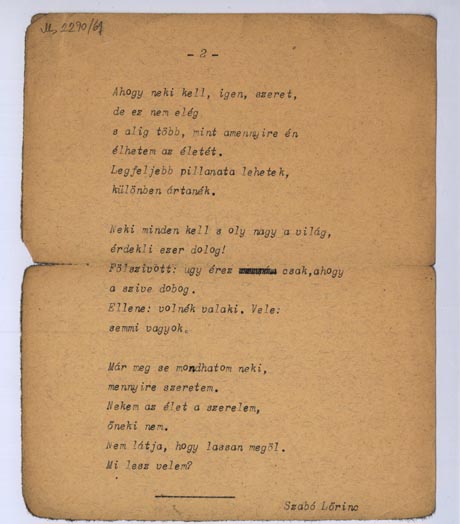 M. 2290/61
- 2 -
Ahogy neki kell, igen, szeret,
de ez nem elég
s alig több, mint amennyire én
élhetem az életét.
Legfeljebb pillanata lehetek,
különben ártanék.
Neki minden kell s oly nagy a világ,
érdekli ezer dolog!
Fölszivott: ugy érez csak,ahogy
a szive dobog.
Ellene: volnék valaki. Vele:
semmi vagyok.
Már meg se mondhatom neki,
mennyire szeretem.
Nekem az élet a szerelem,
őneki nem.
Nem látja, hogy lassan megöl.
Mi lesz velem?
Szabó Lőrinc